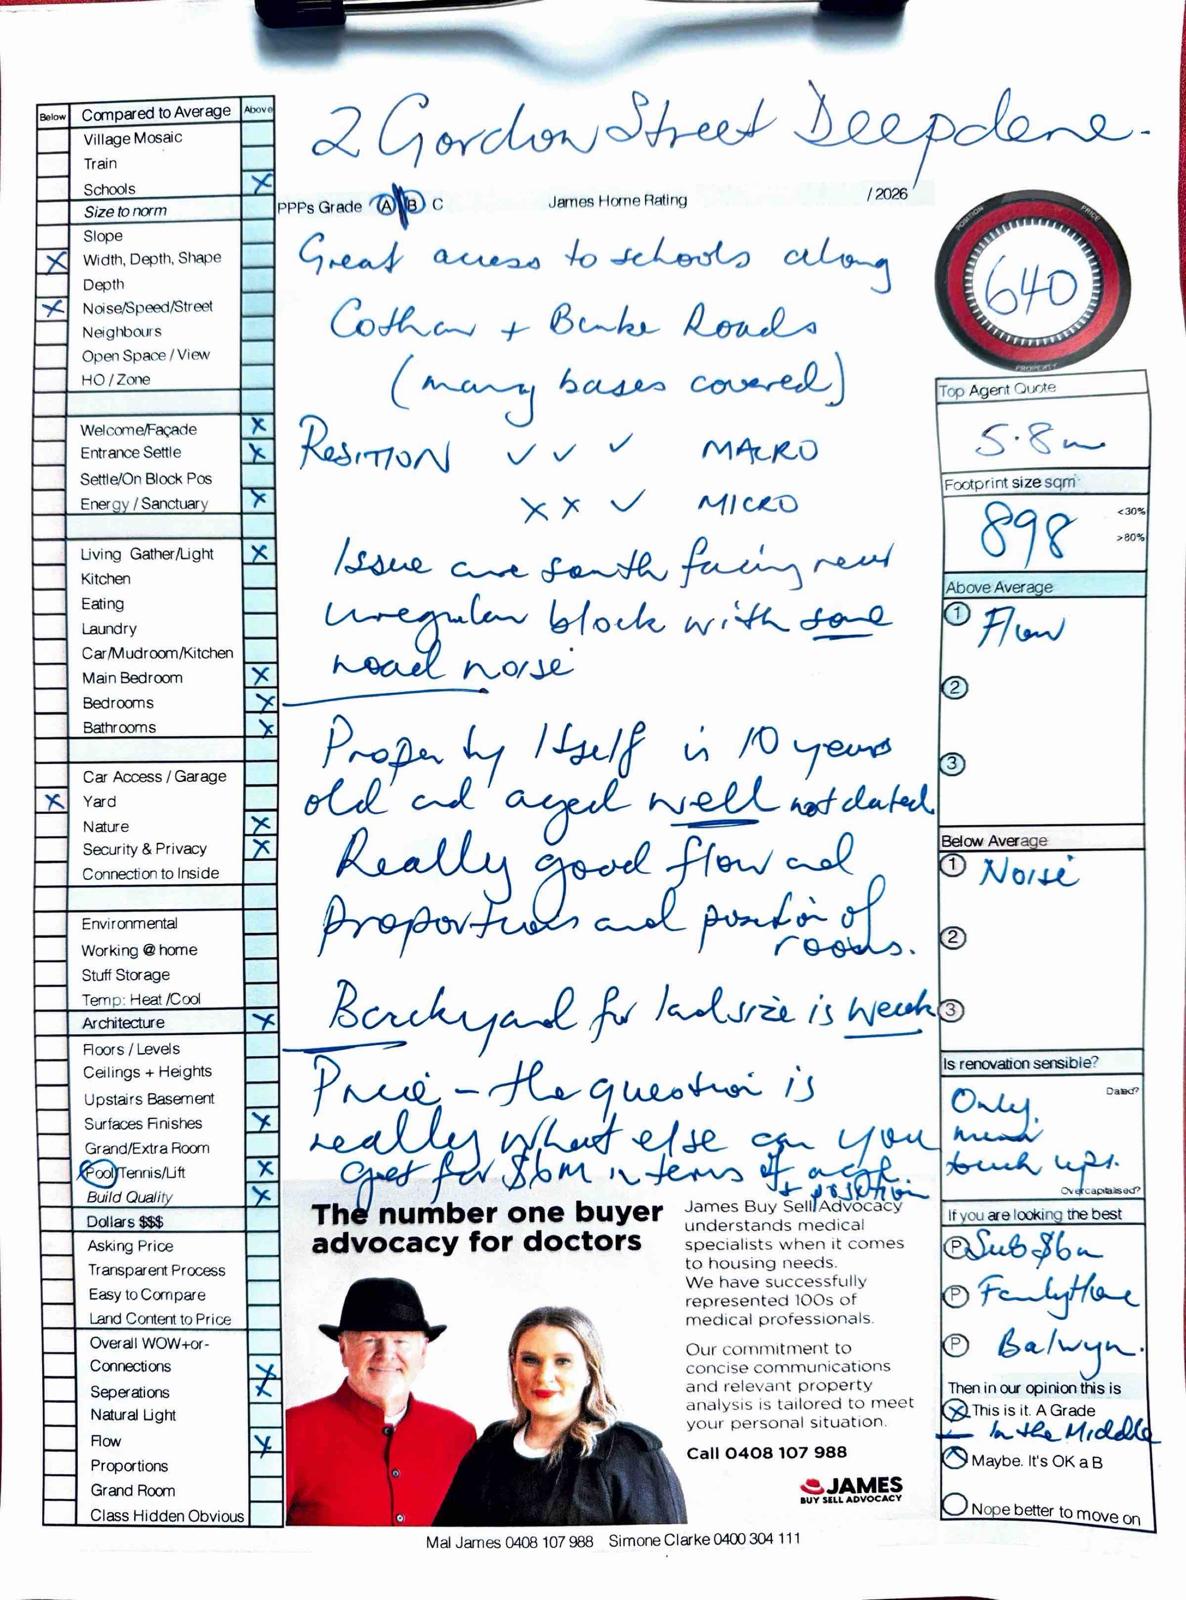 2 Gordon Street Deepdene.
Below
Compared to Average
Above
Village Mosaic
Train
Schools X
Size to norm
Slope
X Width, Depth, Shape
Depth
X Noise/Speed/Street
Neighbours
Open Space / View
HO / Zone
Welcome/Façade X
Entrance Settle X
Settle/On Block Pos
Energy / Sanctuary X
Living Gather/Light X
Kitchen
Eating
Laundry
Car/Mudroom/Kitchen
Main Bedroom X
Bedrooms X
Bathrooms X
Car Access / Garage
X Yard
Nature X
Security & Privacy X
Connection to Inside
Environmental
Working @ home
Stuff Storage
Temp: Heat /Cool
Architecture X
Floors / Levels
Ceilings + Heights
Upstairs Basement
Surfaces Finishes X
Grand/Extra Room
Pool/Tennis/Lift X
Build Quality X
Dollars $$$
Asking Price
Transparent Process
Easy to Compare
Land Content to Price
Overall WOW+or-
Connections X
Seperations X
Natural Light
Flow X
Proportions
Grand Room
Class Hidden Obvious
PPPs Grade A B C
James Home Rating
/ 2026
Great access to schools along
Cotham + Burke Roads
(many bases covered)
POSITION ✓ ✓ ✓ MACRO
X X ✓ MICRO
Issue are south facing rear
irregular block with some
road noise
Property itself is 10 years
old and aged well not dated
Really good flow and
proportions and position of
rooms.
Backyard for landsize is weak
Price - the question is
really what else can you
get for $6M in terms of
+ position
POSITION
PRICE
PROPERTY
640
Top Agent Quote
5.8m
Footprint size sqm
898
<30%
>80%
Above Average
1 Flow
2
3
Below Average
1 Noise
2
3
Is renovation sensible?
Dated?
Only
touch ups.
Overcapitalised?
If you are looking the best
P Sub $6m
P Family Home
P Balwyn.
Then in our opinion this is
X This is it. A Grade
— In the Middle
Maybe. It's OK a B
Nope better to move on
The number one buyer
advocacy for doctors
James Buy Sell Advocacy
understands medical
specialists when it comes
to housing needs.
We have successfully
represented 100s of
medical professionals.
Our commitment to
concise communications
and relevant property
analysis is tailored to meet
your personal situation.
Call 0408 107 988
JAMES
BUY SELL ADVOCACY
Mal James 0408 107 988 Simone Clarke 0400 304 111